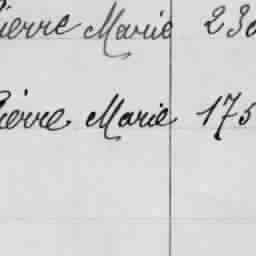 Pierre Marie 230
Pierre Marie 175